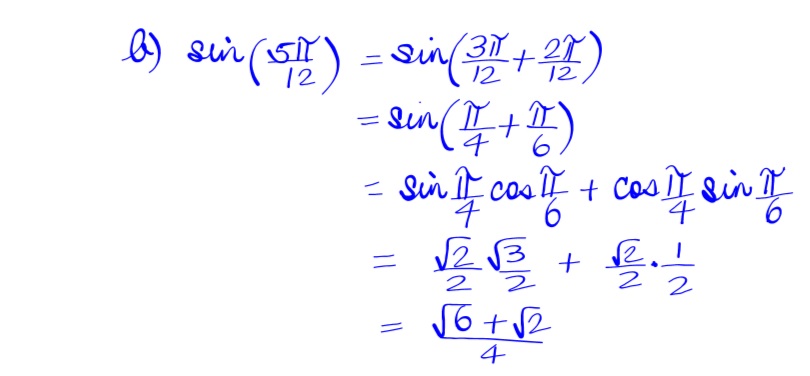 b) sin(5π/12) = sin(3π/12 + 2π/12)
= sin(π/4 + π/6)
= sin π/4 cos π/6 + cos π/4 sin π/6
= √2/2 √3/2 + √2/2 · 1/2
= (√6 + √2)/4